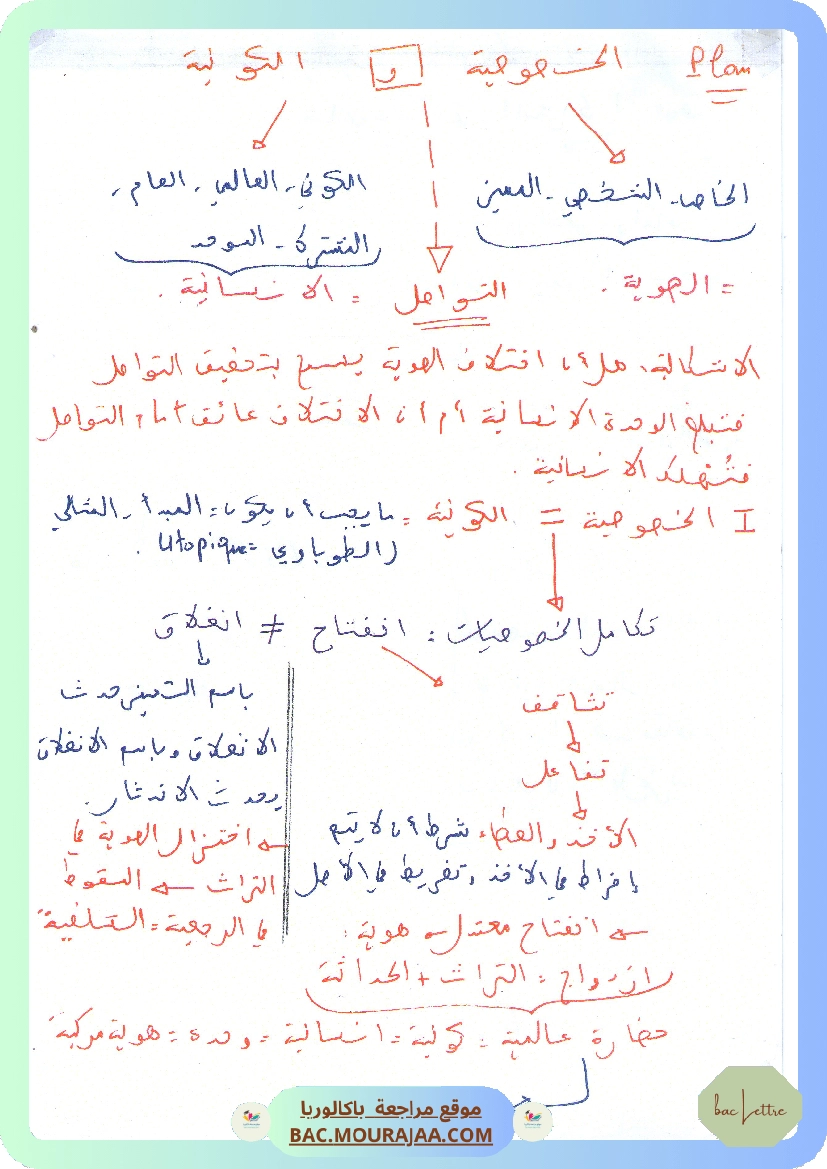 Plan الخصوصية و الكونية
الخاص - الشخصي - المميز
الكوني - العالمي - العام -
المشترك - الموحد
= الهوية .
التواصل = الانسانية .
الاشكالية: هل أن اختلاف الهوية يسمح بتحقيق التواصل
فتبلغ الوحدة الانسانية أم أن الاختلاف عائق أمام التواصل
فتُستهلك الانسانية .
I الخصوصية = الكونية = ما يجب أن يكون = المبدأ - المثالي
(الطوباوي = utopique .
تكامل الخصوصيات : انفتاح ≠ انغلاق
تثاقف
تفاعل
الأخذ والعطاء شرط أن لا يتم
إفراط في الأخذ وتفريط في الأصل
انفتاح معتدل هوية :
ازدواج = التراث + الحداثة
باسم التميز حدث
الانغلاق وباسم الانغلاق
يحدث الاندثار .
اختزال الهوية في
التراث السقوط
في الرجعية = السلفية
حضارة عالمية = كونية = انسانية = وحدة = هوية مركبة
موقع مراجعة باكالوريا
BAC.MOURAJAA.COM
bac Lettre